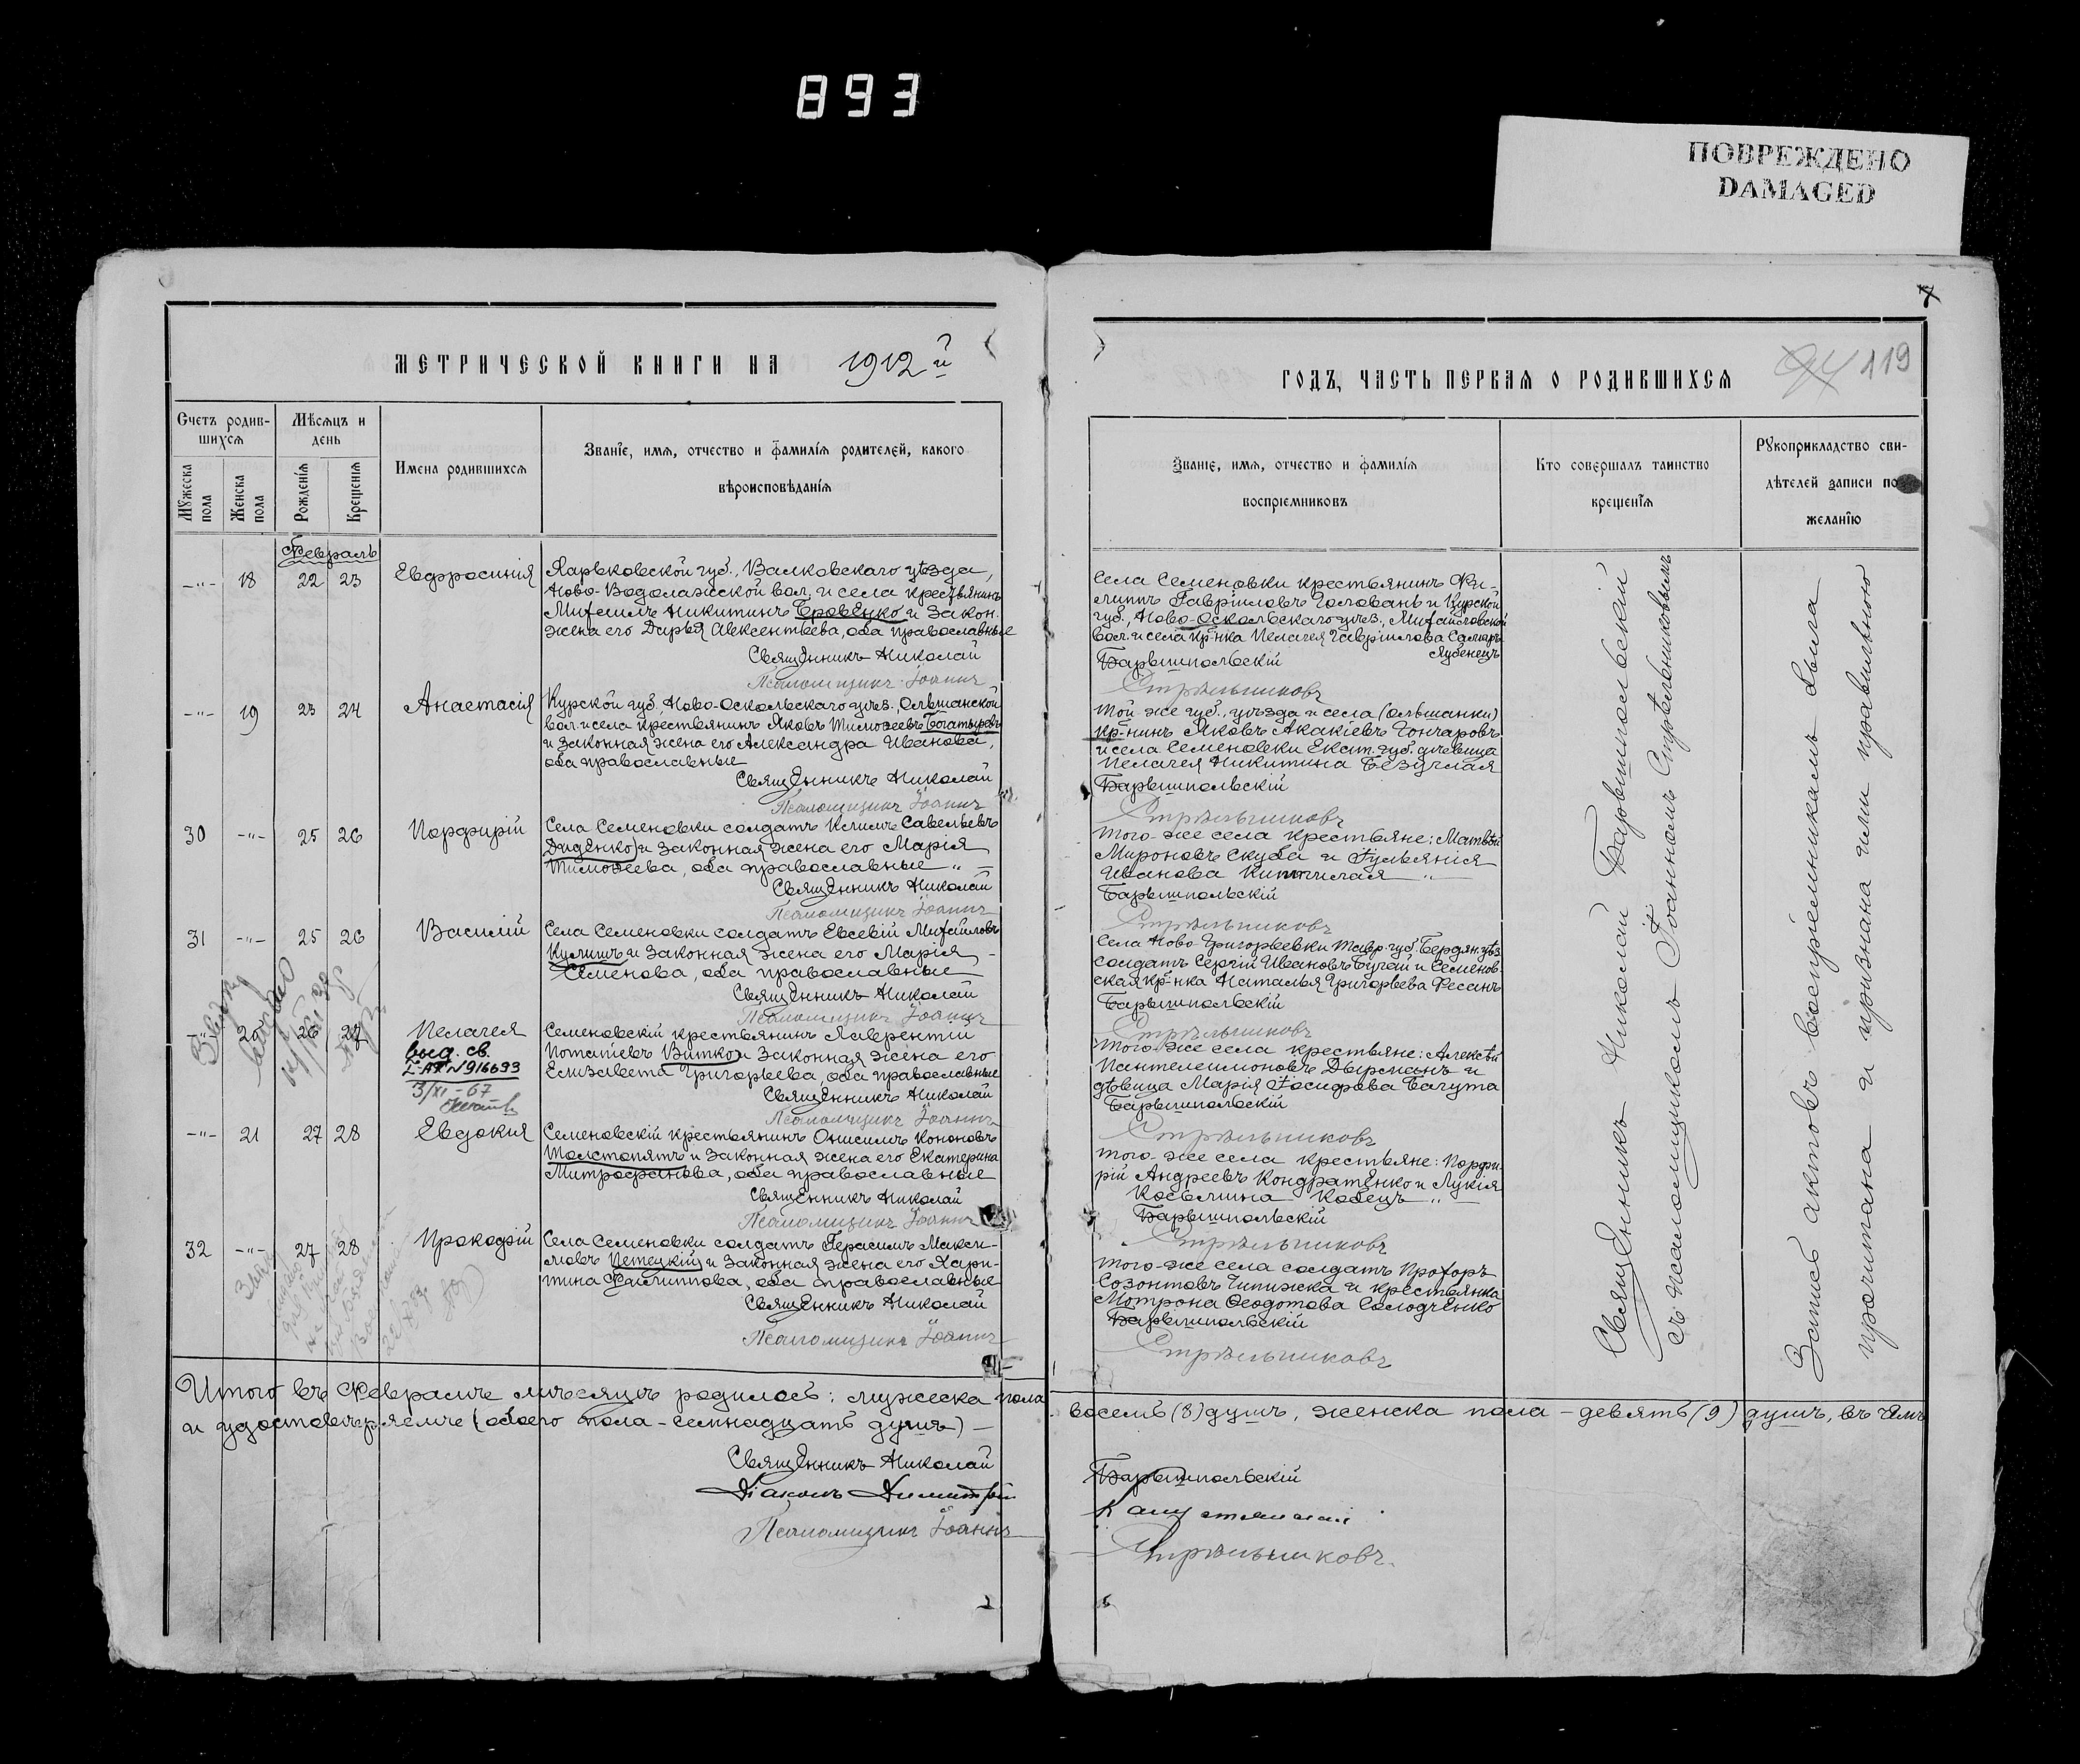 893
ПОВРЕЖДЕНО
DAMAGED
МЕТРИЧЕСКОЙ КНИГИ НА 1912й
Счетъ родив-
шихся
Мѣсяцъ и
день
Имена родившихся
Званіе, имя, отчество и фамилія родителей, какого
вѣроисповѣданія
Мужеска
пола
Женска
пола
Рожденія
Крещенія
Февраль
-"- 18 22 23 Евфросинія
Харьковской губ., Валковскаго уѣзда,
Ново-Водолажской вол. и села крестьянинъ
Михаилъ Никитинъ Бровецко и закон.
жена его Дарья Авксентьева, оба православные
Священникъ Николай
Псаломщикъ Іоаннъ
-"- 19 23 24 Анастасія
Курской губ., Ново-Оскольскаго уѣз., Ольшанской
вол. и села крестьянинъ Яковъ Тимоѳеевъ Богатыревъ
и законная жена его Александра Иванова,
оба православные
Священникъ Николай
Псаломщикъ Іоаннъ
30 -"- 25 26 Порфирій
Села Семеновки солдатъ Климъ Савельевъ
Диденко и законная жена его Марія
Тимоѳеева, оба православные -"-
Священникъ Николай
Псаломщикъ Іоаннъ
31 -"- 25 26 Василій
Села Семеновки солдатъ Евсевій Михайловъ
Кулишъ и законная жена его Марія
Семенова, оба православные
Священникъ Николай
Псаломщикъ Іоаннъ
-"- 20 26 27 Пелагея
выд. св.
I-АП №916693
3/XI-67
Семеновскій крестьянинъ Лаврентій
Потапіевъ Витко и законная жена его
Елизавета Григорьева, оба православные
Священникъ Николай
Псаломщикъ Іоаннъ
-"- 21 27 28 Евдокія
Семеновскій крестьянинъ Онисимъ Кононовъ
Толстопятъ и законная жена его Екатерина
Митрофанова, оба православные
Священникъ Николай
Псаломщикъ Іоаннъ
32 -"- 27 28 Прокофій
Села Семеновки солдатъ Герасимъ Макси-
мовъ Петецкій и законная жена его Хари-
тина Филиппова, оба православные
Священникъ Николай
Псаломщикъ Іоаннъ
Итого въ Февралѣ мѣсяцѣ родилось: мужеска пола
и удостовѣряемъ (обоего пола - семнадцать душъ) -
Священникъ Николай
Діаконъ Димитрій
Псаломщикъ Іоаннъ
119
ГОДЪ, ЧАСТЬ ПЕРВАЯ О РОДИВШИХСЯ
Званіе, имя, отчество и фамилія
воспріемниковъ
Кто совершалъ таинство
крещенія
Рукоприкладство сви-
дѣтелей записи по
желанію
Села Семеновки крестьянинъ Фи-
липпъ Гавріиловъ Головань и Курской
губ., Ново-Оскольскаго уѣз., Михайловской
вол. и села кр-нка Пелагея Гавріилова
Барышпольскій
Стрѣльниковъ
Той-же губ., уѣзда и села (Ольшанки)
кр-нинъ Яковъ Акакіевъ Гончаровъ
и села Семеновки Екат. губ. дѣвица
Пелагея Никитина Безуглая
Барышпольскій
Стрѣльниковъ
Того-же села крестьяне: Матвѣй
Мироновъ Скуба и Іуліанія
Иванова
Барышпольскій
Стрѣльниковъ
Села Ново-Григорьевки Тавр. губ. Бердян. уѣз.
солдатъ Сергій Ивановъ Бугай и Семенов-
ская кр-нка Наталья Григорьева Фесанъ
Барышпольскій
Стрѣльниковъ
Того-же села крестьяне: Алексѣй
Пантелеимоновъ Дырманъ и
дѣвица Марія Іосифова Багута
Барышпольскій
Стрѣльниковъ
Того-же села крестьяне: Порфи-
рій Андреевъ Кондратенко и Лукія
Косьмина Кобецъ -"-
Барышпольскій
Стрѣльниковъ
Того-же села солдатъ Прохоръ
Созонтовъ Чипижка и крестьянка
Мотрона Ѳеодотова Солодченко
Барышпольскій
Стрѣльниковъ
Священникъ Николай Барышпольскій
съ псаломщикомъ Іоанномъ Стрѣльниковымъ
Запись актовъ воспріемникамъ была
прочитана и признана ими правильною
восемь (8) душъ, женска пола - девять (9) душъ, въ чемъ
Барышпольскій
Стрѣльниковъ.